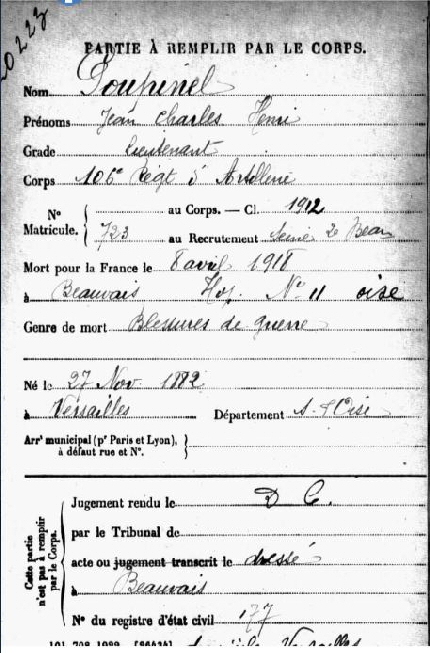 20223
PARTIE À REMPLIR PAR LE CORPS.
Nom Poupinel
Prénoms Jean Charles Henri
Grade Lieutenant
Corps 106e Régt d'Artillerie
No Matricule. { au Corps. — Cl. 1912
723 au Recrutement Seine 2e Bean
Mort pour la France le 8 avril 1918
à Beauvais Hop. No 11 Oise
Genre de mort Blessures de guerre
Né le 27 Nov 1882
à Versailles Département S. & Oise
Arrt municipal (pr Paris et Lyon), à défaut rue et No. }
Cette partie n'est pas à remplir par le Corps.
Jugement rendu le D C.
par le Tribunal de
acte ou jugement transcrit le dressé
à Beauvais
No du registre d'état civil 177